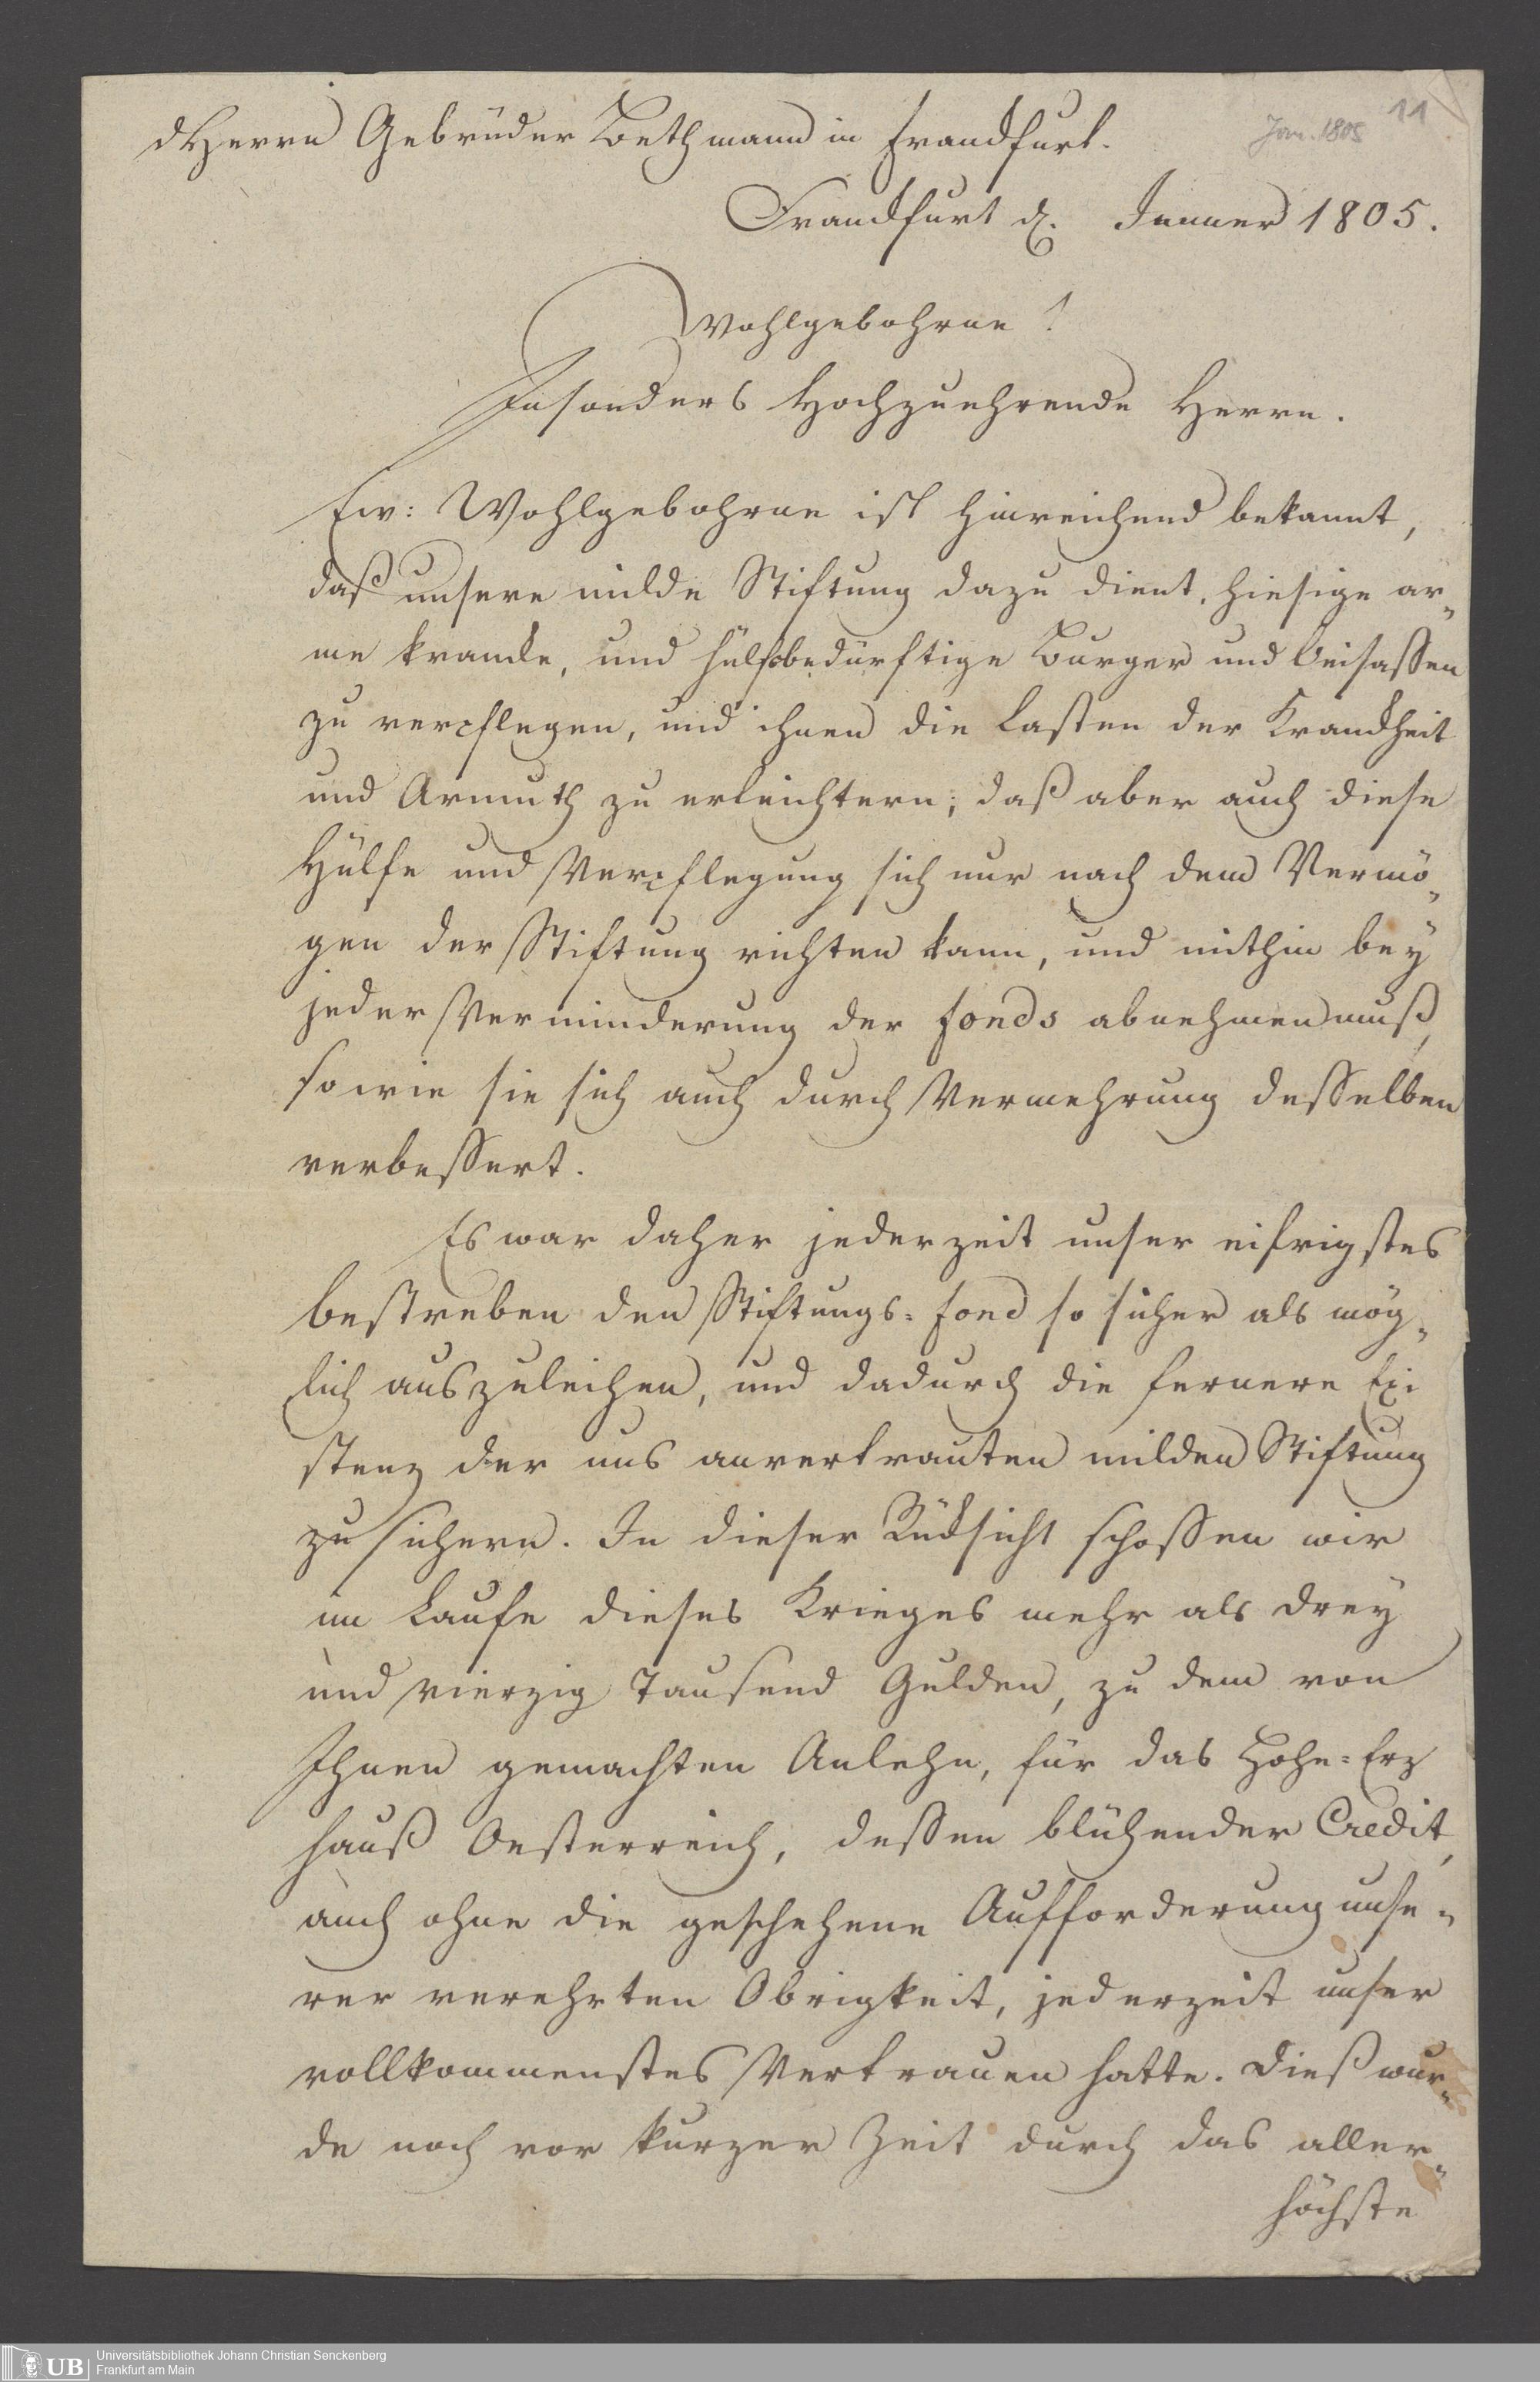 11
Jan. 1805
dHerrn Gebrüder Bethmann in Franckfurt.
Franckfurt d. Jenner 1805.
Wohlgebohrne!
Insonders Hochzuehrende Herrn.
Ew: Wohlgebohrne ist hinreichend bekannt,
daß unsere milde Stiftung dazu dient, hiesige ar„
me krancke, und hülfsbedürftige Burger und Beisassen
zu verpflegen, und ihnen die Lasten der Kranckheit
und Armuth zu erleichtern; daß aber auch diese
Hülfe und Verpflegung sich nur nach dem Vermö„
gen der Stiftung richten kann, und mithin bey
jeder Verminderung der fonds abnehmen muß,
sowie sie sich auch durch Vermehrung desselben
verbessert.
Es war daher jederzeit unser eifrigstes
bestreben den Stiftungs=fond so sicher als mög„
lich auszuleihen, und dadurch die fernere Exi
stenz der uns anvertrauten milden Stiftung
zu sichern. In dieser Rücksicht schossen wir
im Laufe dieses Krieges mehr als drey
und vierzig Tausend Gulden, zu dem von
Ihnen gemachten Anlehn, für das Hohe=Erz
hauß Oesterreich, dessen blühender Credit,
auch ohne die geschehene Aufforderung unse„
rer verehrten Obrigkeit, jederzeit unser
vollkommenstes Vertrauen hatte. Dieß wur„
de noch vor kurzer Zeit durch das aller„
höchste
UB
Universitätsbibliothek Johann Christian Senckenberg
Frankfurt am Main